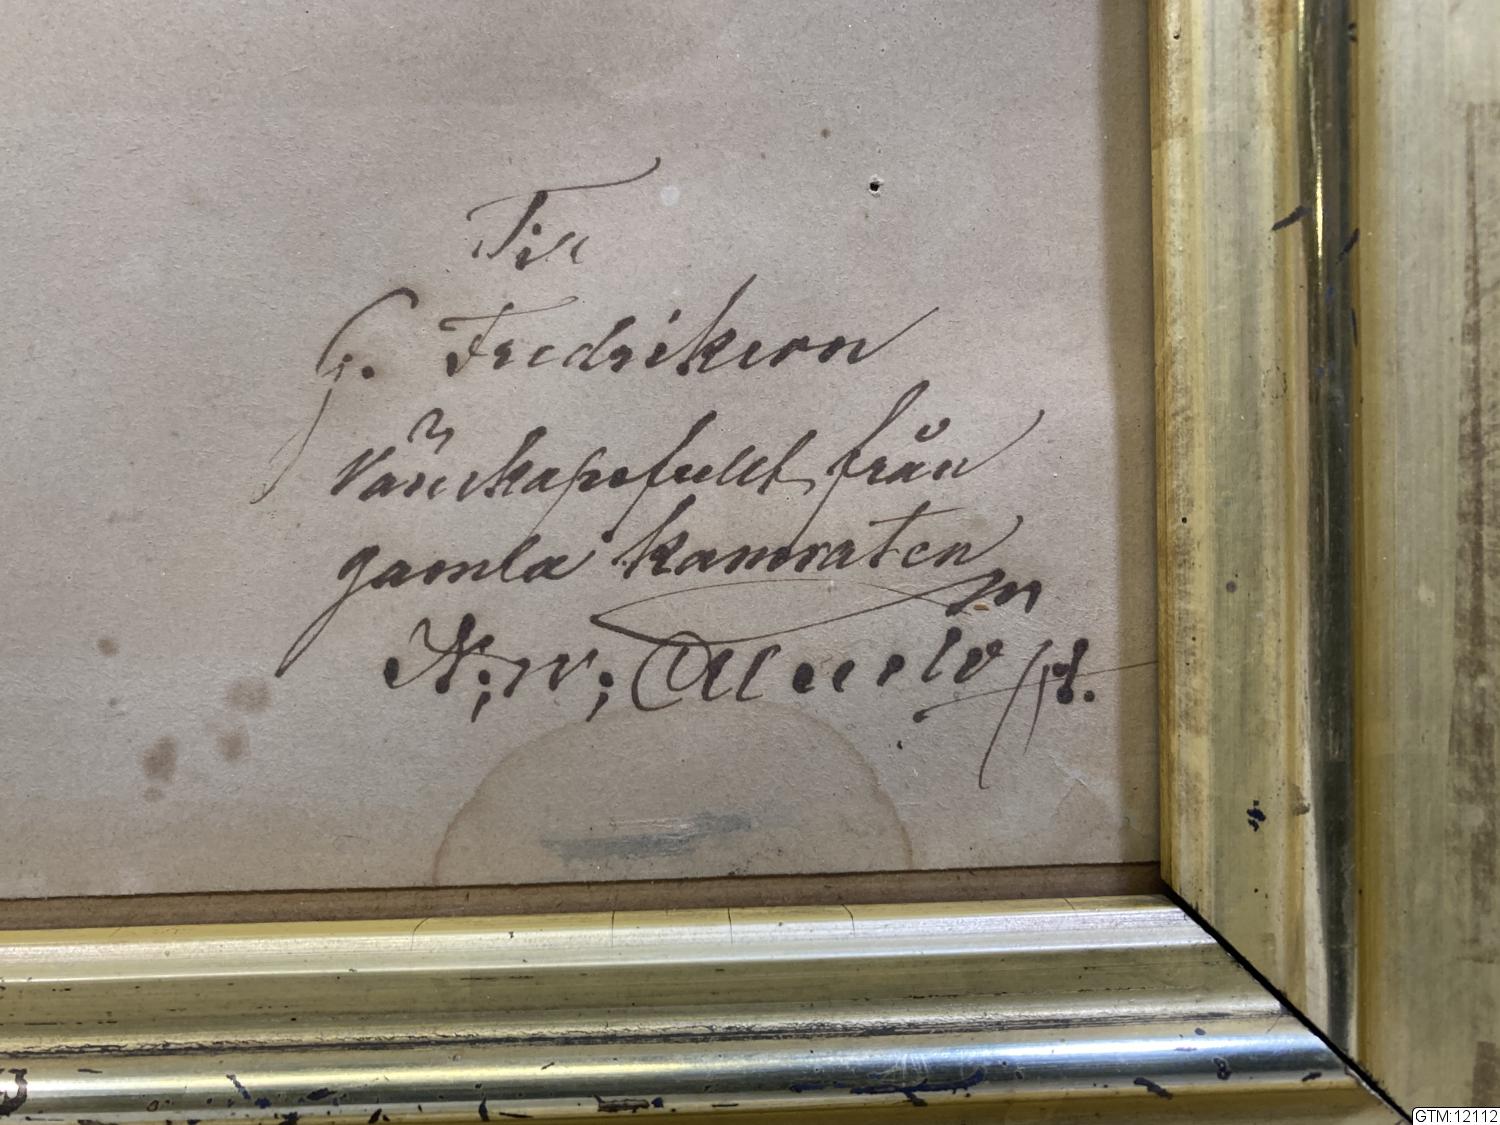 Till
G. Fredrikson
Vänskapsfullt från
gamla kamraten
GTM:12112